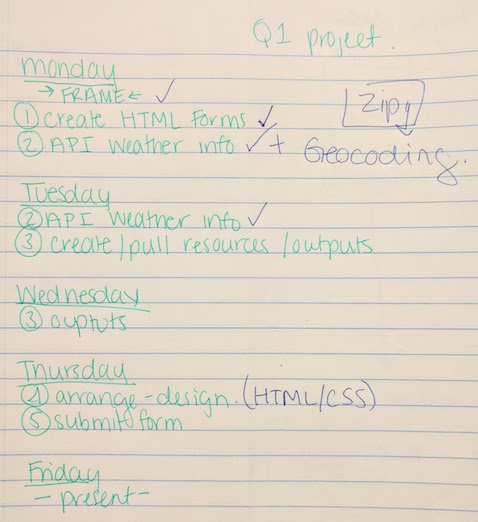 Q1 project.
Monday
→ FRAME ← ✓
① create HTML Forms ✓
Zipy
② API Weather info ✓ + Geocoding.
Tuesday
② API Weather info ✓
③ create/pull resources/outputs
Wednesday
③ ouptuts
Thursday
④ arrange-design. (HTML/CSS)
⑤ submit form
Friday
- present -